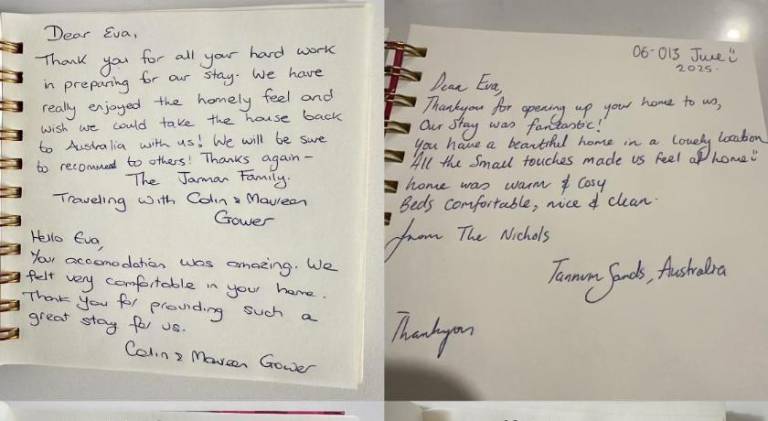 Dear Eva,
Thank you for all your hard work
in preparing for our stay. We have
really enjoyed the homely feel and
wish we could take the house back
to Australia with us! We will be sure
to recommend to others! Thanks again -
The Jarman Family.
Traveling with Colin & Maureen
Gower
Hello Eva,
Your accomodation was amazing. We
felt very comfortable in your home.
Thank you for providing such a
great stay for us.
Colin & Maureen Gower
06-013 June
2025.
Dear Eva,
Thankyou for opening up your home to us,
Our stay was fantastic!
You have a beautiful home in a lovely location
All the small touches made us feel at home
home was warm & cosy
Beds comfortable, nice & clean.
from The Nichols
Tannum Sands, Australia
Thankyou